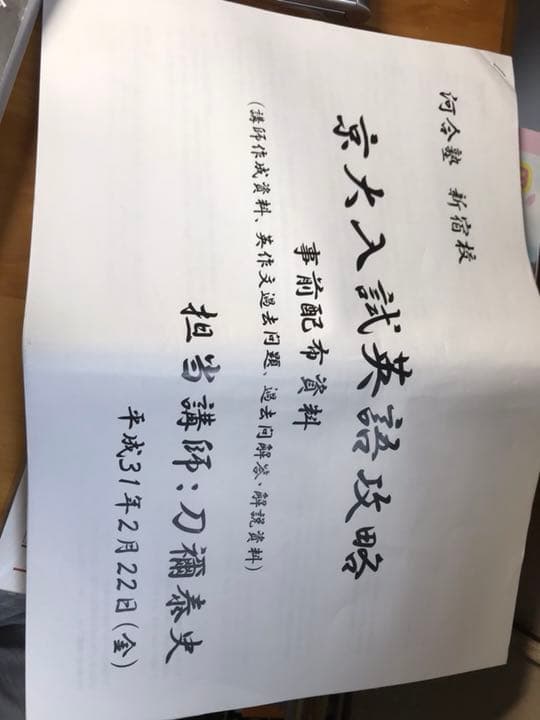 河合塾 新宿校
京大入試英語攻略
事前配布資料
(講師作成資料、英作文過去問題、過去問解答・解説資料)
担当講師:刀禰泰史
平成31年2月22日(金)